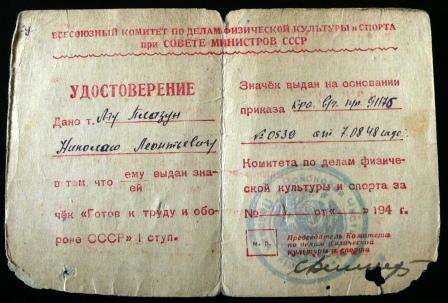 ВСЕСОЮЗНЫЙ КОМИТЕТ ПО ДЕЛАМ ФИЗИЧЕСКОЙ КУЛЬТУРЫ и СПОРТА
при СОВЕТЕ МИНИСТРОВ СССР
УДОСТОВЕРЕНИЕ
Дано т.
Николаю Леонтьевичу
в том что ему выдан зна-
ей
чёк «Готов к труду и обо-
роне СССР» I ступ.
Значёк выдан на основании
приказа
№ 0539 от 7.08.48 года
Комитета по делам физиче-
ской культуры и спорта за
№ от « » 194 г.
М. П.
Председатель Комитета
по делам физической
культуры и спорта